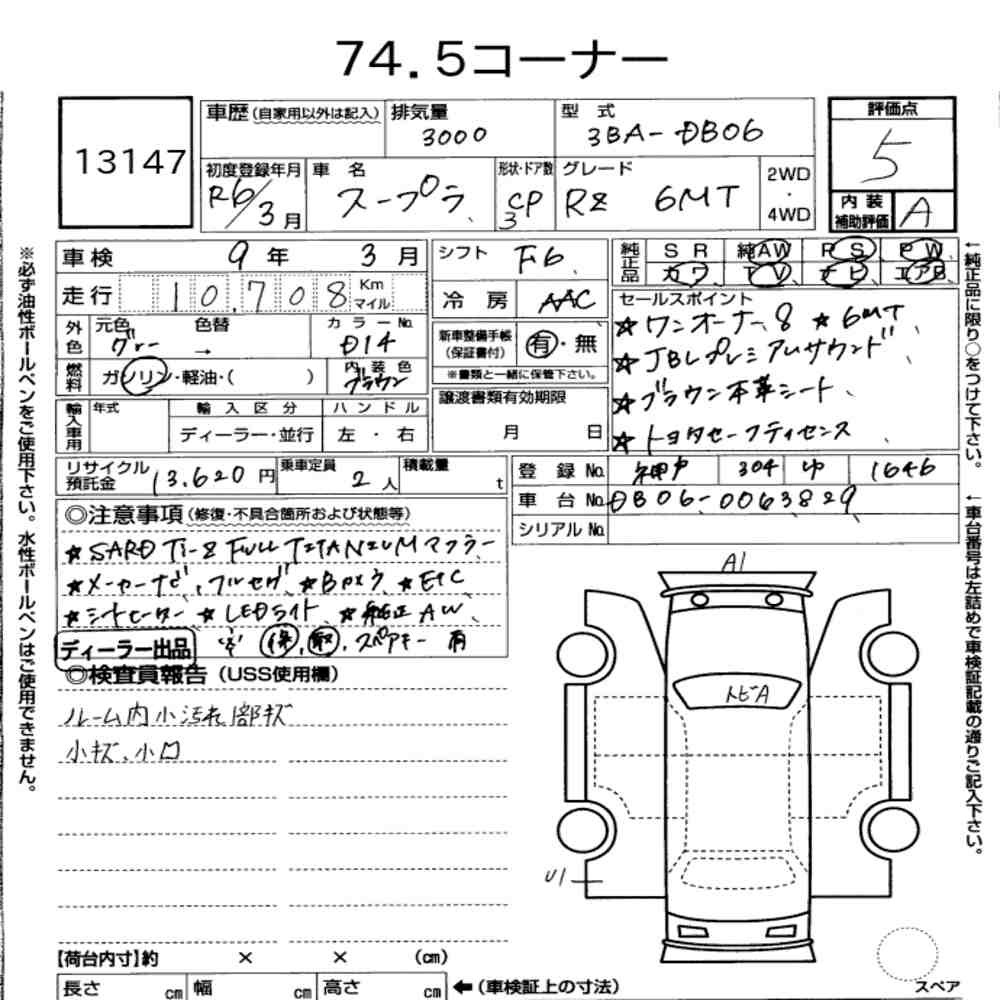 74.5コーナー
13147
車歴(自家用以外は記入) 排気量 3000 型式 3BA-DB06 評価点 5
初度登録年月 R6/3月 車名 スープラ 形状・ドア数 CP 3 グレード RZ 6MT 2WD・4WD 内装補助評価 A
車検 9年 3月 シフト F6 純正品 SR 純AW PS PW
カワ TV ナビ エアB
走行 10,708 Km マイル 冷房 AAC
セールスポイント
★ワンオーナー、8 ★6MT
★JBLプレミアムサウンド
★ブラウン本革シート、
★トヨタセーフティセンス
外色 元色 グレー → 色替 カラーNo. D14
新車整備手帳(保証書付) 有・無
※書類と一緒に保管下さい。
燃料 ガソリン・軽油・( ) 内装色 ブラウン
譲渡書類有効期限
月 日
輸入車用 年式 輸入区分 ハンドル
ディーラー・並行 左・右
リサイクル預託金 13.620円 乗車定員 2人 積載量 t
登録No. 神戸 304 ゆ 1646
車台No. DB06-0063829
シリアルNo.
◎注意事項(修復・不具合箇所および状態等)
★SARD Ti-Z FULL TITANIUMマフラー
★メーカーナビ、フルセグ ★Bカメラ ★ETC
★シートヒーター ★LEDライト ★純正AW、
ディーラー出品 保、取、スペアキー有
◎検査員報告(USS使用欄)
ルーム内小汚れ部キズ
小キズ、小凹
A1
トビA
U1
【荷台内寸】約 × × (cm)
長さ cm 幅 cm 高さ cm ←(車検証上の寸法)
スペア
※必ず油性ボールペンをご使用下さい。水性ボールペンはご使用できません。
←純正品に限り○をつけて下さい。
←車台番号は左詰めで車検証記載の通りご記入下さい。